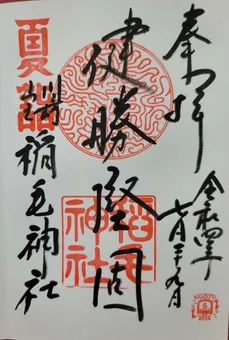 奉拝
令和四年
七月二十九日
健勝堅固
夏詣
稲毛神社
稲毛神社